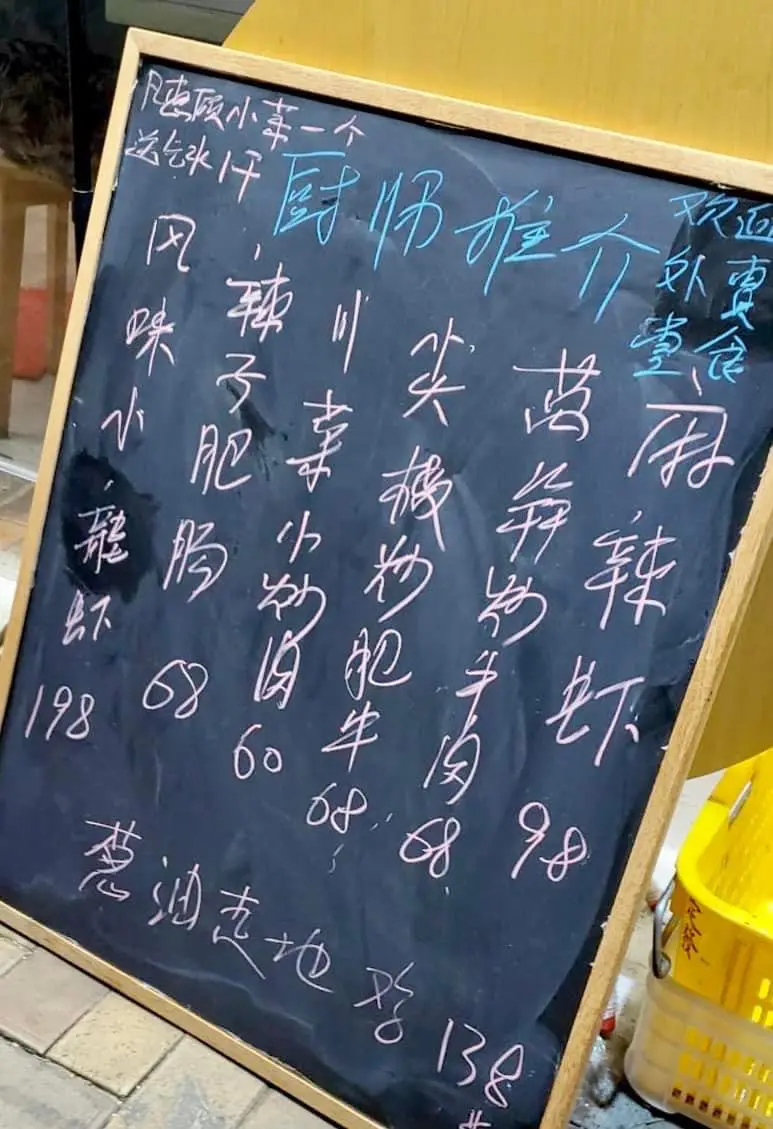 凡惠顾小菜一个
送汽水1
厨师推介
欢迎
外賣
堂食
风味小龍虾 198
辣子肥肠 68
川菜小炒肉 60
尖椒炒肥牛 68
莴笋炒牛肉 68
麻辣虾 98
葱油走地鸡 138